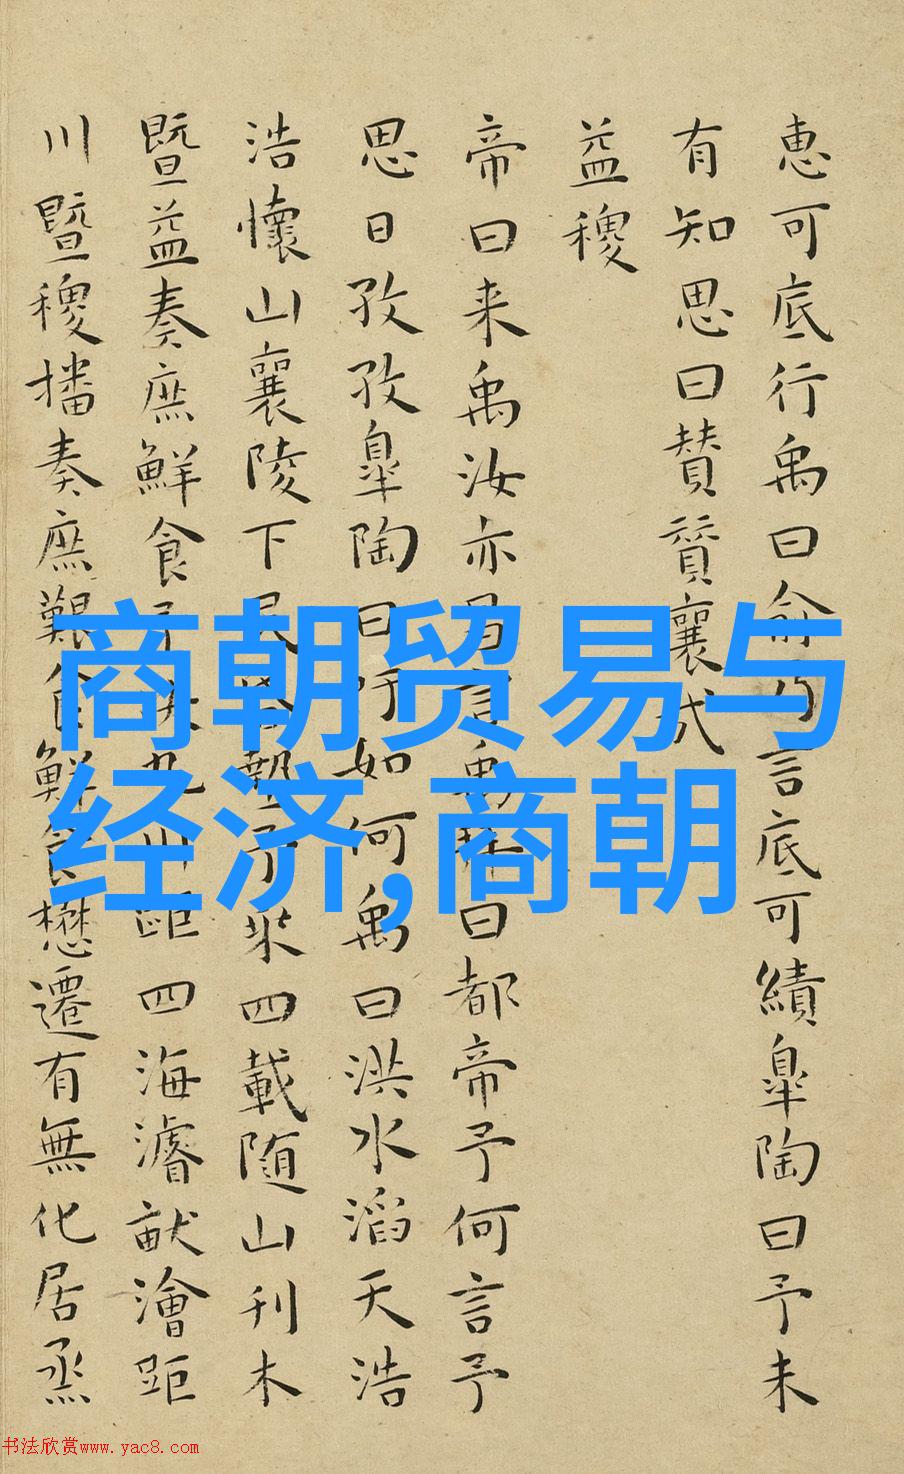 恵可底行禹曰俞乃言底可績皐陶曰予未
有知思曰賛賛襄哉
益稷
帝曰来禹汝亦昌言禹拜曰都帝予何言予
思日孜孜皐陶曰吁如何禹曰洪水滔天浩
浩懷山襄陵下民昏墊予乘四載随山刊木
暨益奏庶鮮食予決九川距四海濬畎澮距
川暨稷播奏庶艱食鮮食懋遷有無化居烝
商朝贸易与
经济,商朝
书法欣赏www.yac8.com